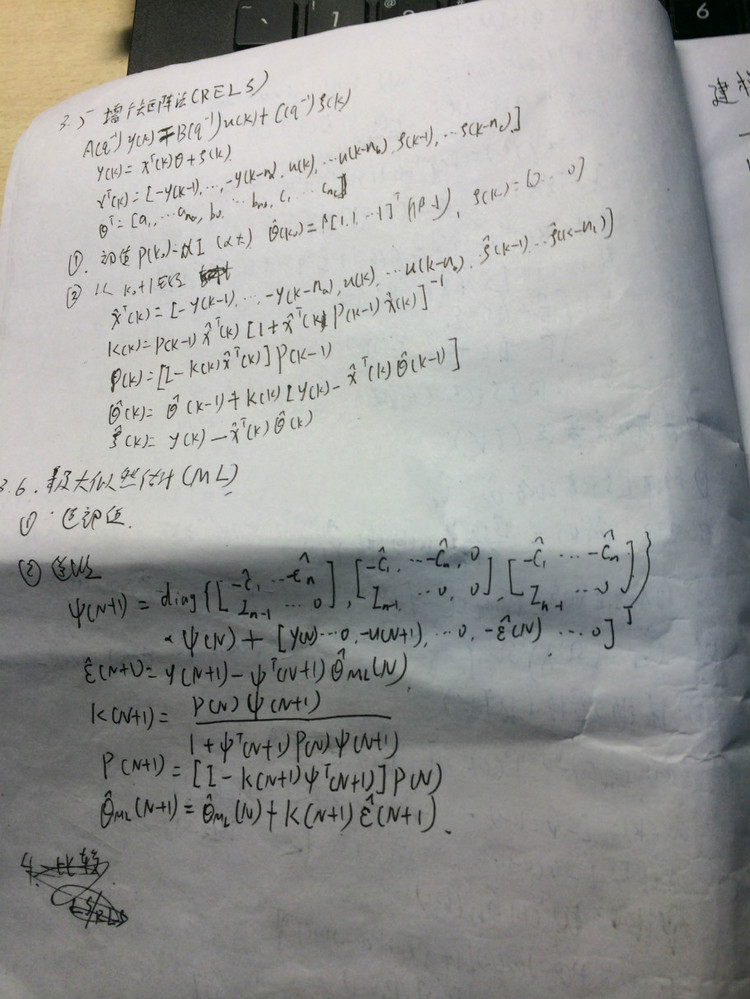 3.5 增广矩阵法(RELS)
A(q⁻¹)y(k)=B(q⁻¹)u(k)+C(q⁻¹)ξ(k)
y(k)=xᵀ(k)θ+ξ(k)
xᵀ(k)=[-y(k-1),…,-y(k-nₐ),u(k),…u(k-n_b),ξ(k-1),…ξ(k-n_c)]
θᵀ=[a₁,…a_{na},b₀…b_{nb},c₁…c_{nc}]
①. 初值P(k₀)=αI (α大) θ̂(k₀)=β[1,1,…1]ᵀ(β小), ξ(k₀)=[0…0]
② 从k₀+1时刻
x̂ᵀ(k)=[-y(k-1),…,-y(k-nₐ),u(k),…u(k-n_b),ξ̂(k-1)…ξ̂(k-n_c)]
K(k)=P(k-1)x̂ᵀ(k)[1+x̂ᵀ(k)P(k-1)x̂(k)]⁻¹
P(k)=[I-K(k)x̂ᵀ(k)]P(k-1)
θ̂(k)=θ̂(k-1)+K(k)[y(k)-x̂ᵀ(k)θ̂(k-1)]
ξ̂(k)=y(k)-x̂ᵀ(k)θ̂(k)
3.6.极大似然估计(ML)
①
②
ψ(N+1)=diag{[-ĉ₁…-ĉₙ
I_{n-1}…0],[-ĉ₁,…-ĉₙ,0
I_{n-1}…0,0],[-ĉ₁…-ĉₙ
I_{n-1}…0]}
×ψ(N)+[y(N)…0,-u(N+1),…0,-ε̂(N)…0]ᵀ
ε̂(N+1)=y(N+1)-ψᵀ(N+1)θ̂_{ML}(N)
K(N+1)=P(N)ψ(N+1)
1+ψᵀ(N+1)P(N)ψ(N+1)
P(N+1)=[I-K(N+1)ψᵀ(N+1)]P(N)
θ̂_{ML}(N+1)=θ̂_{ML}(N)+K(N+1)ε̂(N+1).
4.比较
LS/RLS
建模
6